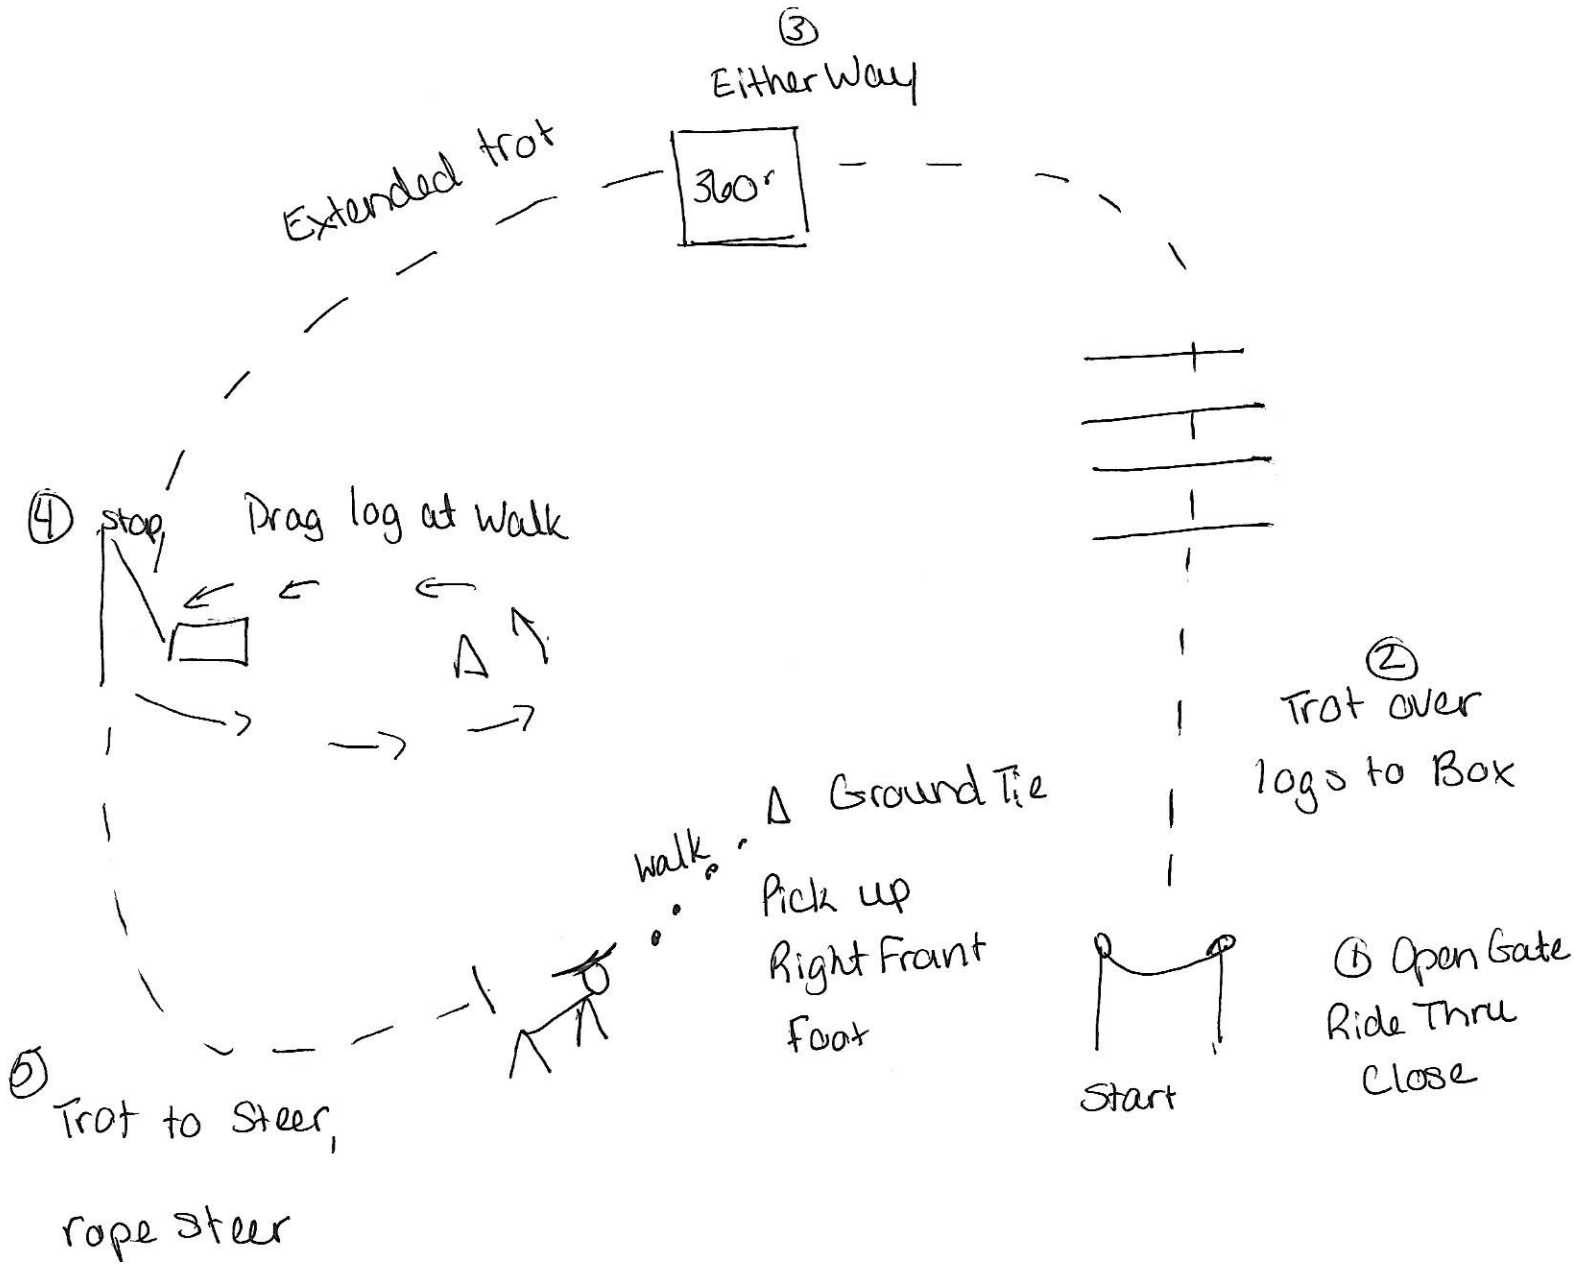 ③
Either Way
360°
Extended trot
④ stop
Drag log at Walk
②
Trot over
logs to Box
Ground Tie
walk
Pick up
Right Front
Foot
① Open Gate
Ride Thru
Close
Start
⑤
Trot to Steer,
rope steer